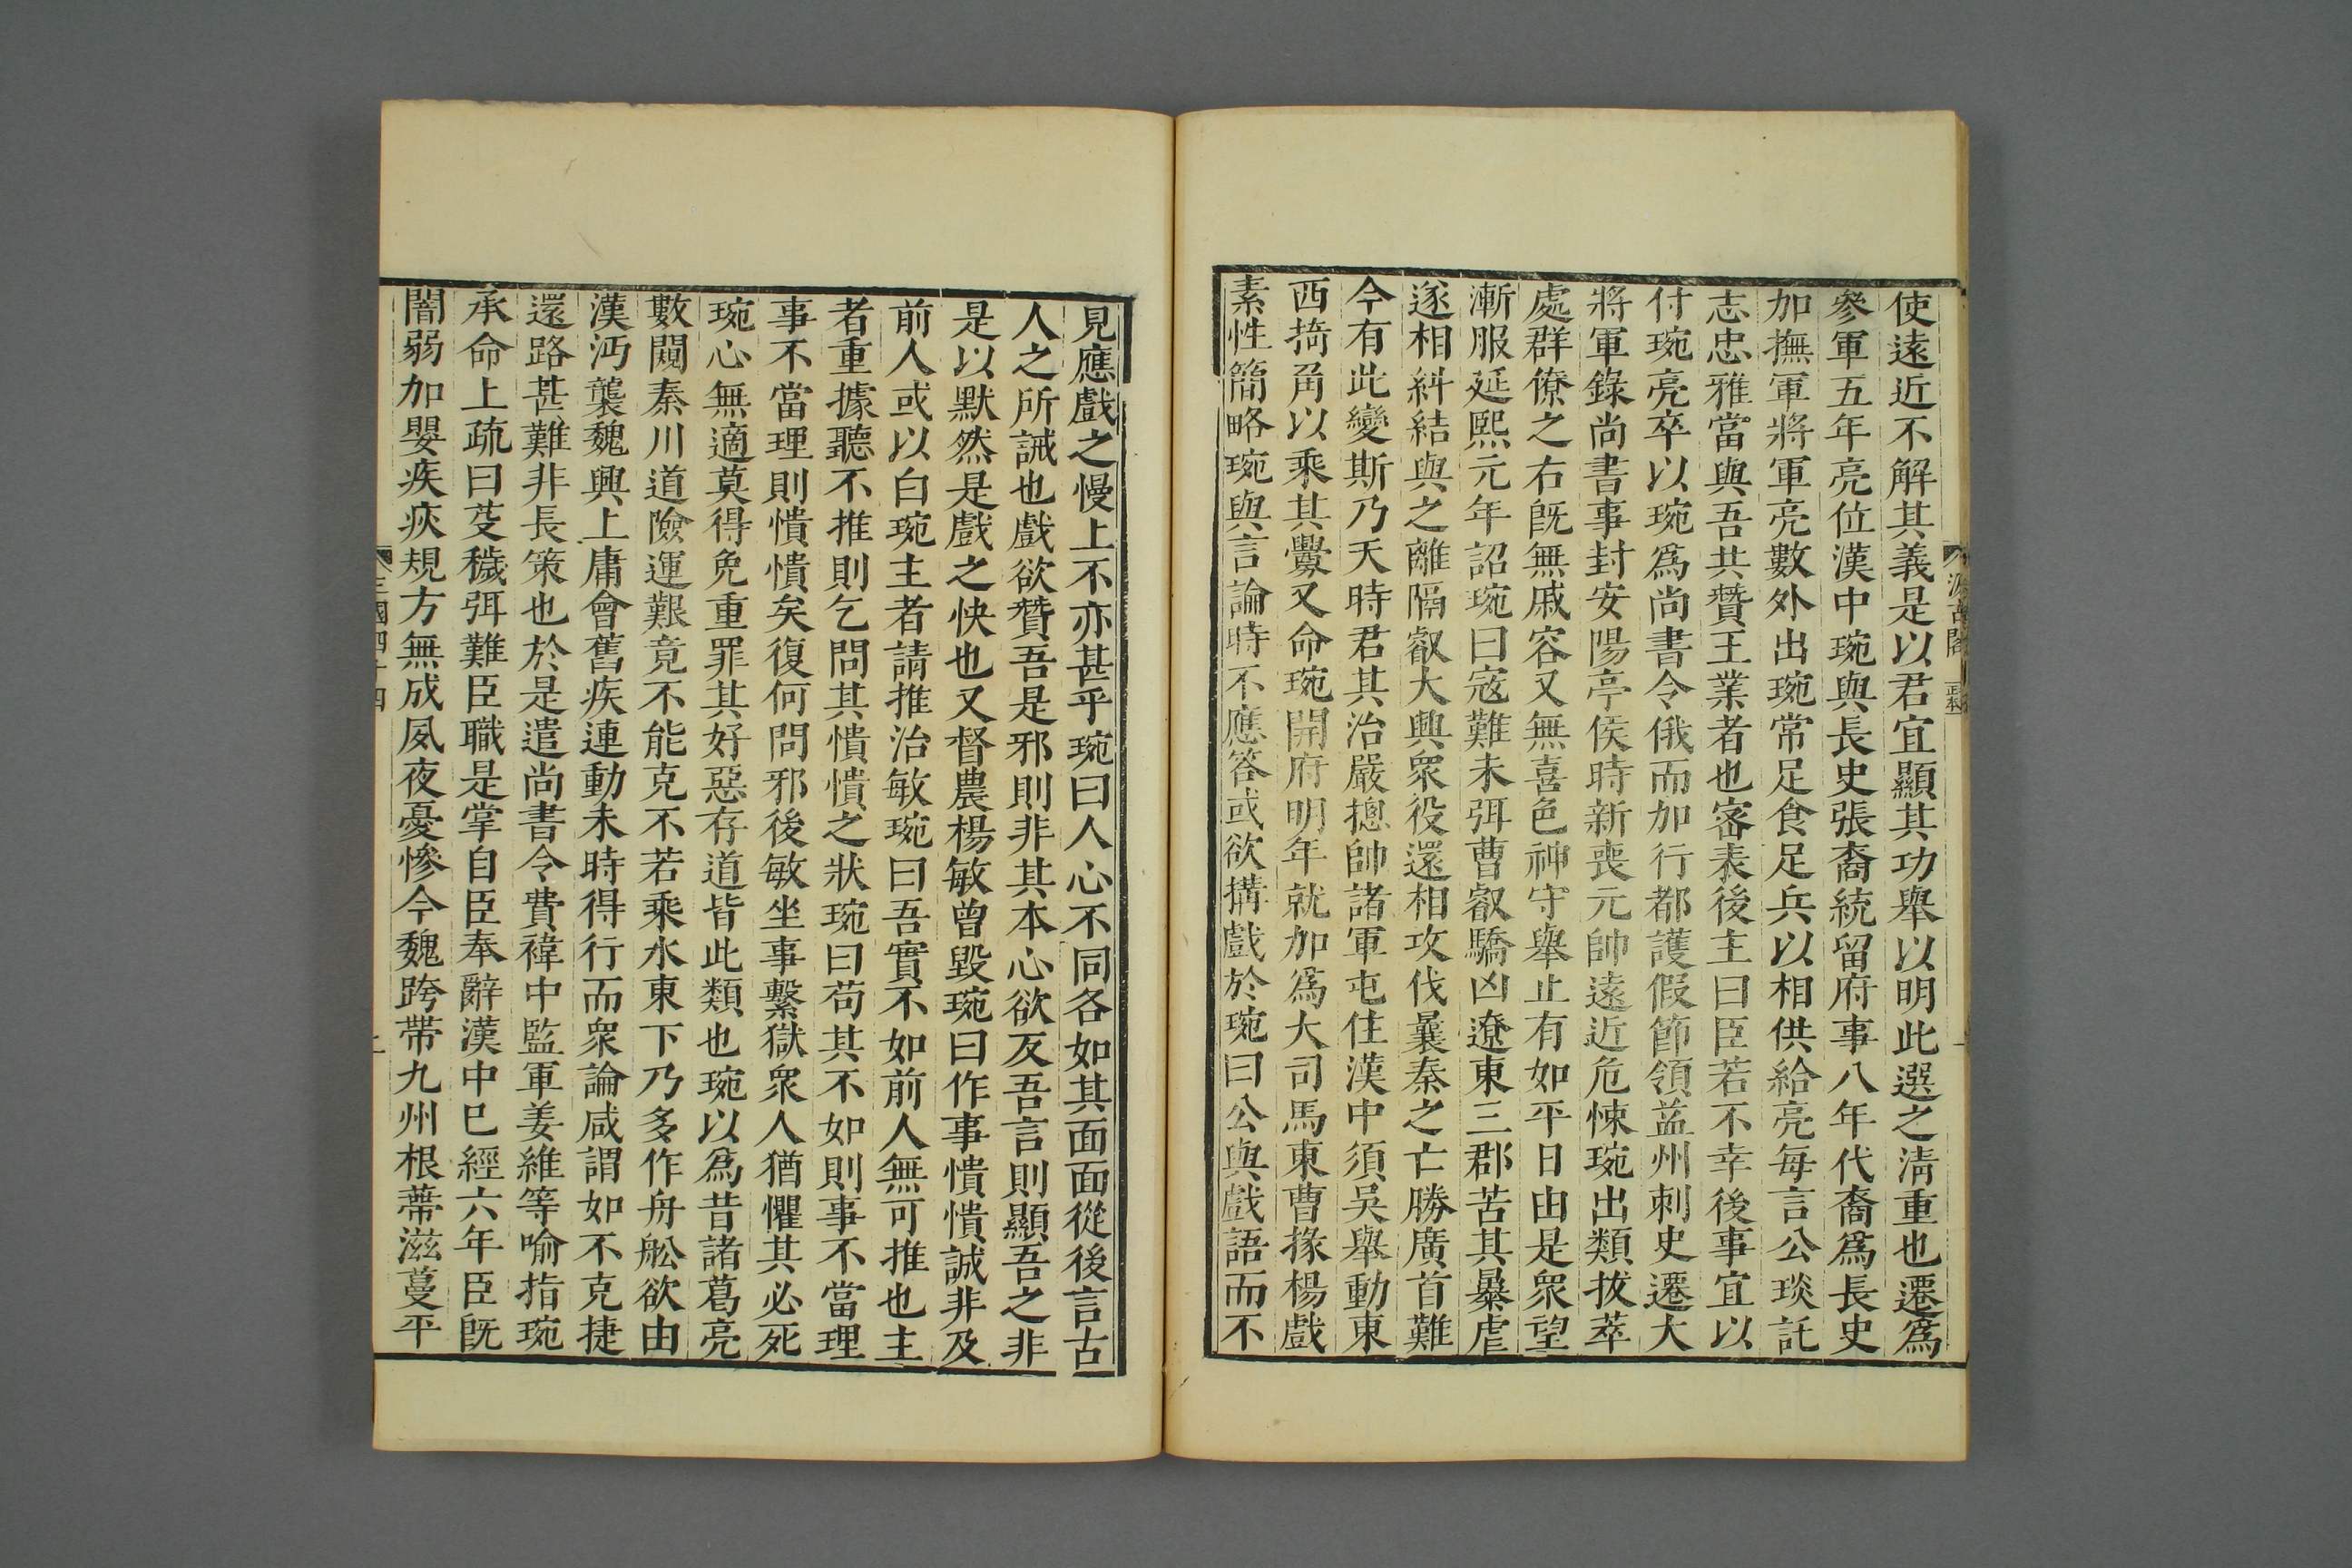 使遠近不解其義是以君宜顯其功舉以明此選之清重也遷爲
參軍五年亮位漢中琬與長史張裔統留府事八年代裔爲長史
加撫軍將軍亮數外出琬常足食足兵以相供給亮每言公琰託
志忠雅當與吾共贊王業者也密表後主曰臣若不幸後事宜以
付琬亮卒以琬爲尚書令俄而加行都護假節領益州刺史遷大
將軍錄尚書事封安陽亭侯時新喪元帥遠近危悚琬出類拔萃
處群僚之右旣無戚容又無喜色神守舉止有如平日由是衆望
漸服延熙元年詔琬曰寇難未弭曹叡驕凶遼東三郡苦其暴虐
遂相糾結與之離隔叡大興衆役還相攻伐曩秦之亡勝廣首難
今有此變斯乃天時君其治嚴摠帥諸軍屯住漢中須吳舉動東
西掎角以乘其釁又命琬開府明年就加爲大司馬東曹掾楊戲
素性簡略琬與言論時不應答或欲搆戲於琬曰公與戲語而不
見應戲之慢上不亦甚乎琬曰人心不同各如其面面從後言古
人之所誡也戲欲贊吾是邪則非其本心欲反吾言則顯吾之非
是以默然是戲之快也又督農楊敏曾毀琬曰作事憒憒誠非及
前人或以白琬主者請推治敏琬曰吾實不如前人無可推也主
者重據聽不推則乞問其憒憒之狀琬曰苟其不如則事不當理
事不當理則憒憒矣復何問邪後敏坐事繫獄衆人猶懼其必死
琬心無適莫得免重罪其好惡存道皆此類也琬以爲昔諸葛亮
數闚秦川道險運艱竟不能克不若乘水東下乃多作舟舩欲由
漢沔襲魏興上庸會舊疾連動未時得行而衆論咸謂如不克捷
還路甚難非長策也於是遣尚書令費禕中監軍姜維等喻指琬
承命上疏曰芟穢弭難臣職是掌自臣奉辭漢中巳經六年臣旣
闇弱加嬰疾疢規方無成夙夜憂慘今魏跨帶九州根蔕滋蔓平
三國四十四